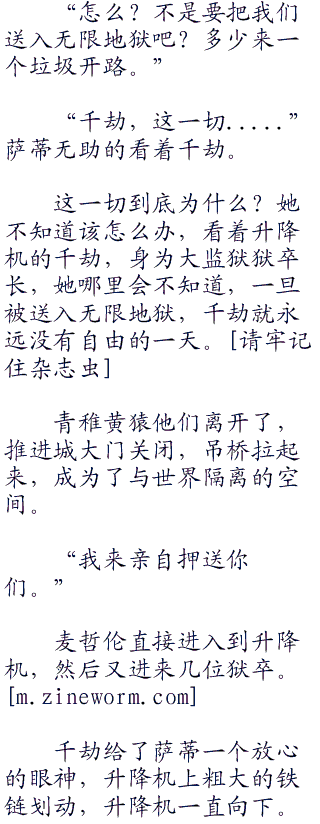 “怎么？不是要把我们
送入无限地狱吧？多少来一
个垃圾开路。”
“千劫，这一切.....”
萨蒂无助的看着千劫。
这一切到底为什么？她
不知道该怎么办，看着升降
机的千劫，身为大监狱狱卒
长，她哪里会不知道，一旦
被送入无限地狱，千劫就永
远没有自由的一天。[请牢记
住杂志虫]
青稚黄猿他们离开了，
推进城大门关闭，吊桥拉起
来，成为了与世界隔离的空
间。
“我来亲自押送你
们。”
麦哲伦直接进入到升降
机，然后又进来几位狱卒。
[m.zineworm.com]
千劫给了萨蒂一个放心
的眼神，升降机上粗大的铁
链划动，升降机一直向下。